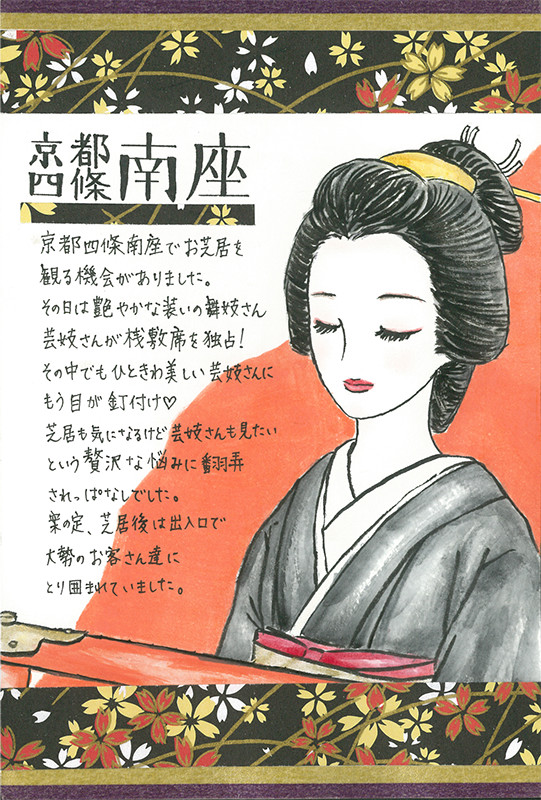 京都四條南座
京都四條南座でお芝居を
観る機会がありました。
その日は艶やかな装いの舞妓さん
芸妓さんが桟敷席を独占!
その中でもひときわ美しい芸妓さんに
もう目が釘付け♡
芝居も気になるけど芸妓さんも見たい
という贅沢な悩みに翻弄
されっぱなしでした。
案の定、芝居後は出入口で
大勢のお客さん達に
とり囲まれていました。